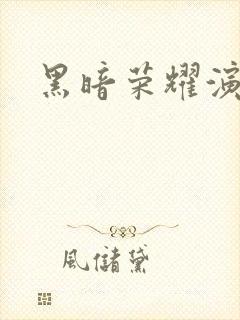 黑暗荣耀演
風儲黛